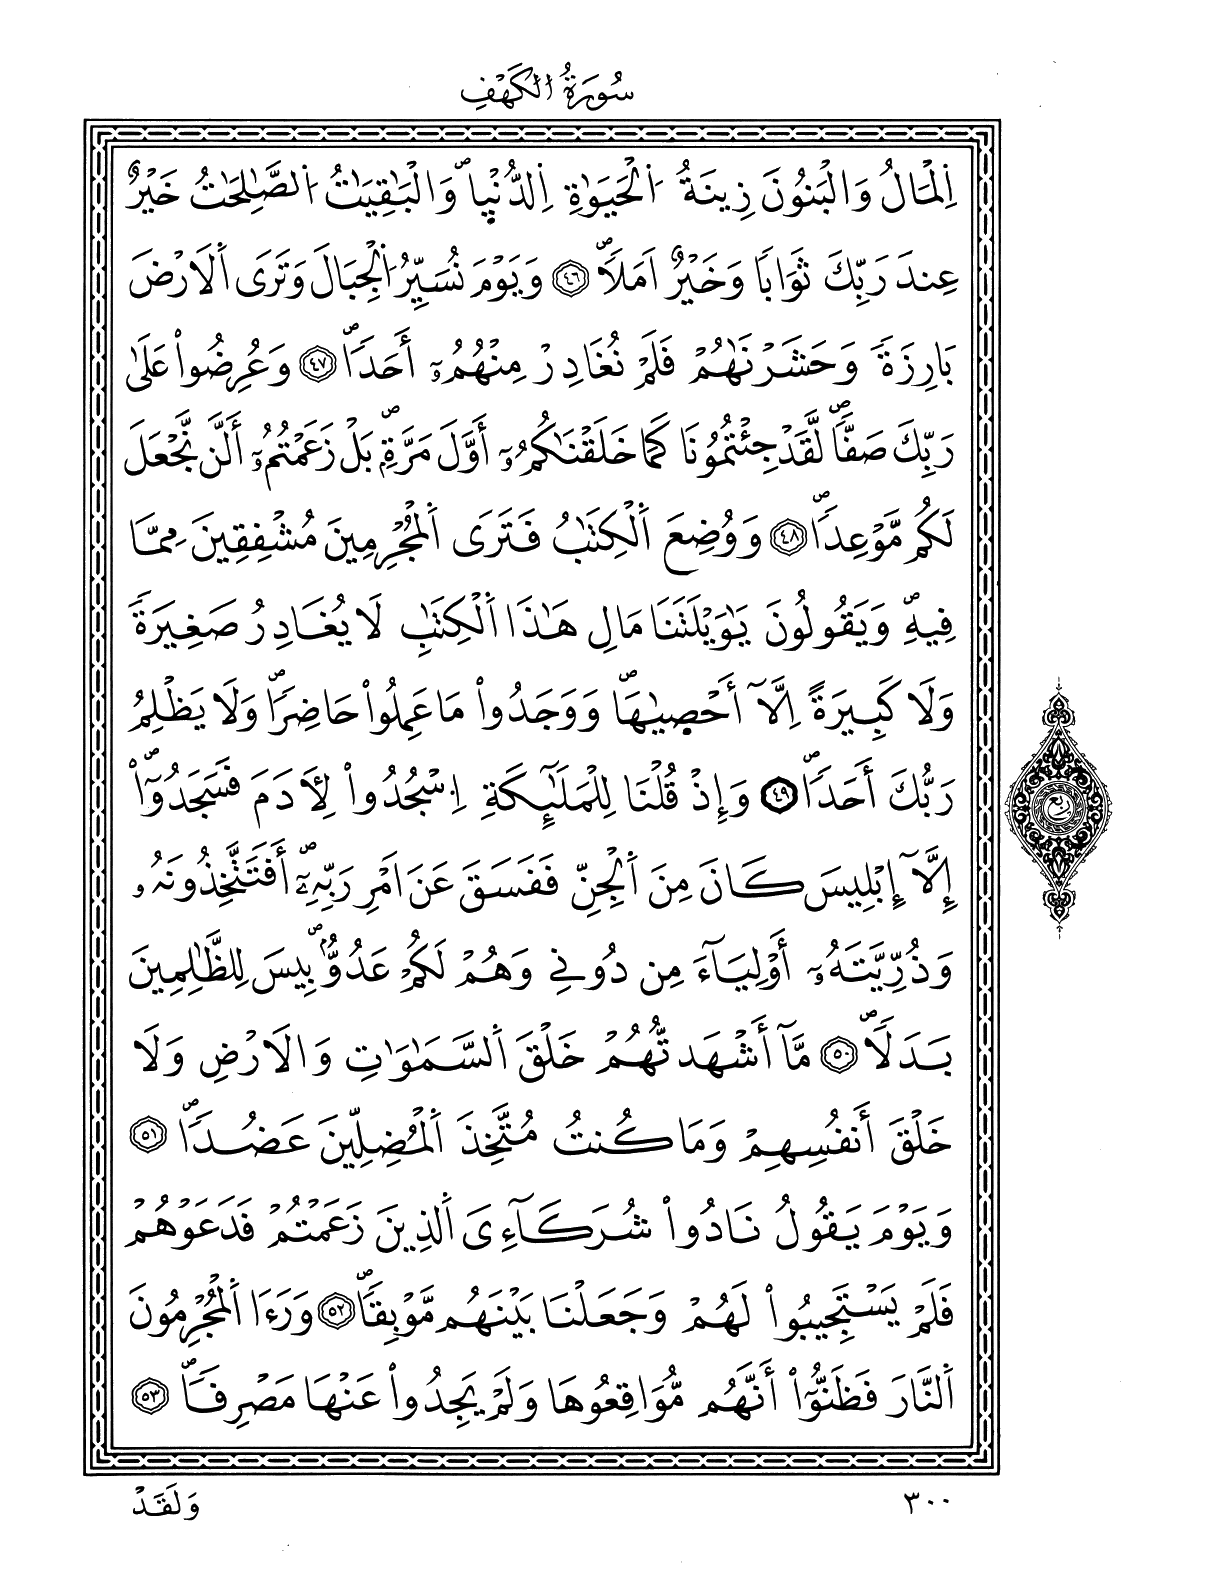 سُورَةُ الكَهْفِ
اِ۬لْمَالُ وَالْبَنُونَ زِينَةُ اُ۬لْحَيَوٰةِ اِ۬لدُّنْي۪اۖ وَالْبَٰقِيَٰتُ اُ۬لصَّٰلِحَٰتُ خَيْرٌ
عِندَ رَبِّكَ ثَوَاباٗ وَخَيْرٌ اَمَلاٗۖ ٤٦ وَيَوْمَ نُسَيِّرُ اُ۬لْجِبَالَ وَتَرَى اَ۬لَارْضَ
بَارِزَةٗ وَحَشَرْنَٰهُمْ فَلَمْ نُغَادِرْ مِنْهُمُۥٓ أَحَداٗۖ ٤٧ وَعُرِضُواْ عَلَىٰ
رَبِّكَ صَفّاٗۖ لَّقَدْ جِئْتُمُونَا كَمَا خَلَقْنَٰكُمُۥٓ أَوَّلَ مَرَّةِۢۖ بَلْ زَعَمْتُمُۥٓ أَلَّن نَّجْعَلَ
لَكُم مَّوْعِداٗۖ ٤٨ وَوُضِعَ اَ۬لْكِتَٰبُ فَتَرَى اَ۬لْمُجْرِمِينَ مُشْفِقِينَ مِمَّا
فِيهِۖ وَيَقُولُونَ يَٰوَيْلَتَنَا مَالِ هَٰذَا اَ۬لْكِتَٰبِ لَا يُغَادِرُ صَغِيرَةٗ
وَلَا كَبِيرَةً اِلَّآ أَحْص۪يٰهَاۖ وَوَجَدُواْ مَا عَمِلُواْ حَاضِراٗۖ وَلَا يَظْلِمُ
رَبُّكَ أَحَداٗۖ ٤٩ وَإِذْ قُلْنَا لِلْمَلَٰٓئِكَةِ اِ۟سْجُدُواْ لِأٓدَمَ فَسَجَدُوٓاْۖ
إِلَّآ إِبْلِيسَ كَانَ مِنَ اَ۬لْجِنِّ فَفَسَقَ عَنَ اَمْرِ رَبِّهِۦٓۖ أَفَتَتَّخِذُونَهُۥ
وَذُرِّيَّتَهُۥٓ أَوْلِيَآءَ مِن دُونِے وَهُمْ لَكُمْ عَدُوُّۢۖ بِيسَ لِلظَّٰلِمِينَ
بَدَلاٗۖ ٥٠ مَّآ أَشْهَدتُّهُمْ خَلْقَ اَ۬لسَّمَٰوَٰتِ وَالَارْضِ وَلَا
خَلْقَ أَنفُسِهِمْ وَمَا كُنتُ مُتَّخِذَ اَ۬لْمُضِلِّينَ عَضُداٗۖ ٥١
وَيَوْمَ يَقُولُ نَادُواْ شُرَكَآءِيَ اَ۬لذِينَ زَعَمْتُمْ فَدَعَوْهُمْ
فَلَمْ يَسْتَجِيبُواْ لَهُمْ وَجَعَلْنَا بَيْنَهُم مَّوْبِقاٗۖ ٥٢ وَرَءَا اَ۬لْمُجْرِمُونَ
اَ۬لنَّارَ فَظَنُّوٓاْ أَنَّهُم مُّوَاقِعُوهَا وَلَمْ يَجِدُواْ عَنْهَا مَصْرِفاٗۖ ٥٣
ربع
٣٠٠
وَلَقَدْ